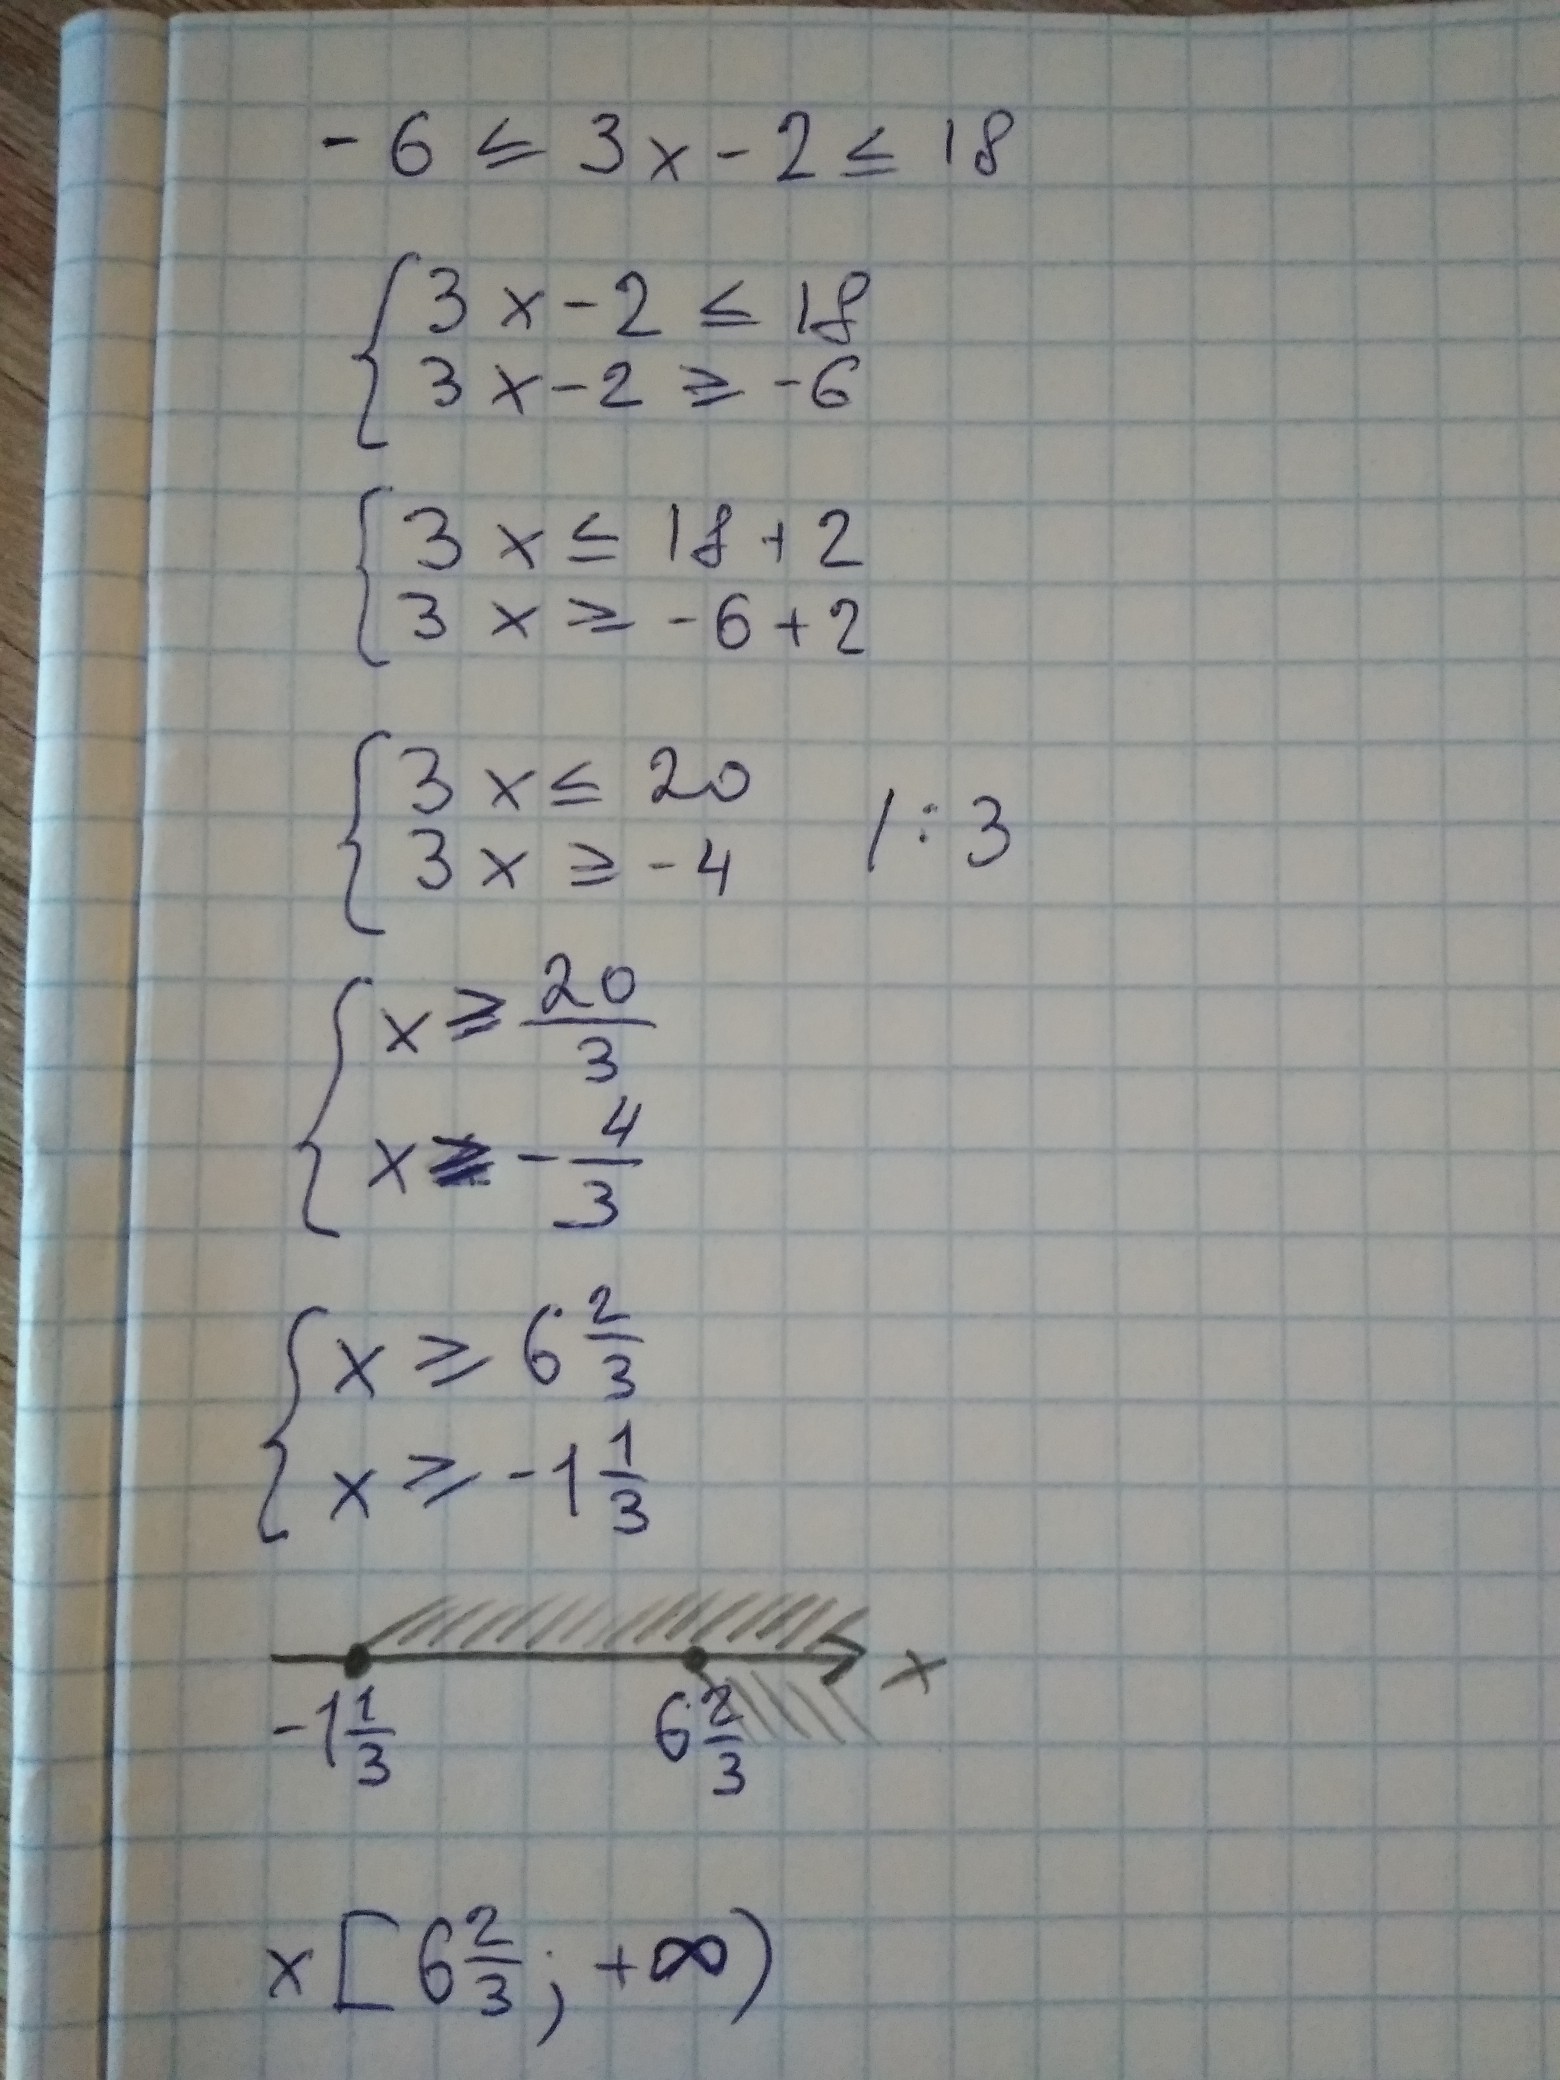 -6 ≤ 3x - 2 ≤ 18
3x - 2 ≤ 18
3x - 2 ≥ -6
3x ≤ 18 + 2
3x ≥ -6 + 2
3x ≤ 20 / : 3
3x ≥ -4
x ≥ 20/3
x ≥ - 4/3
x ≥ 6 2/3
x ≥ -1 1/3
x
-1 1/3 6 2/3
x [6 2/3; +∞)